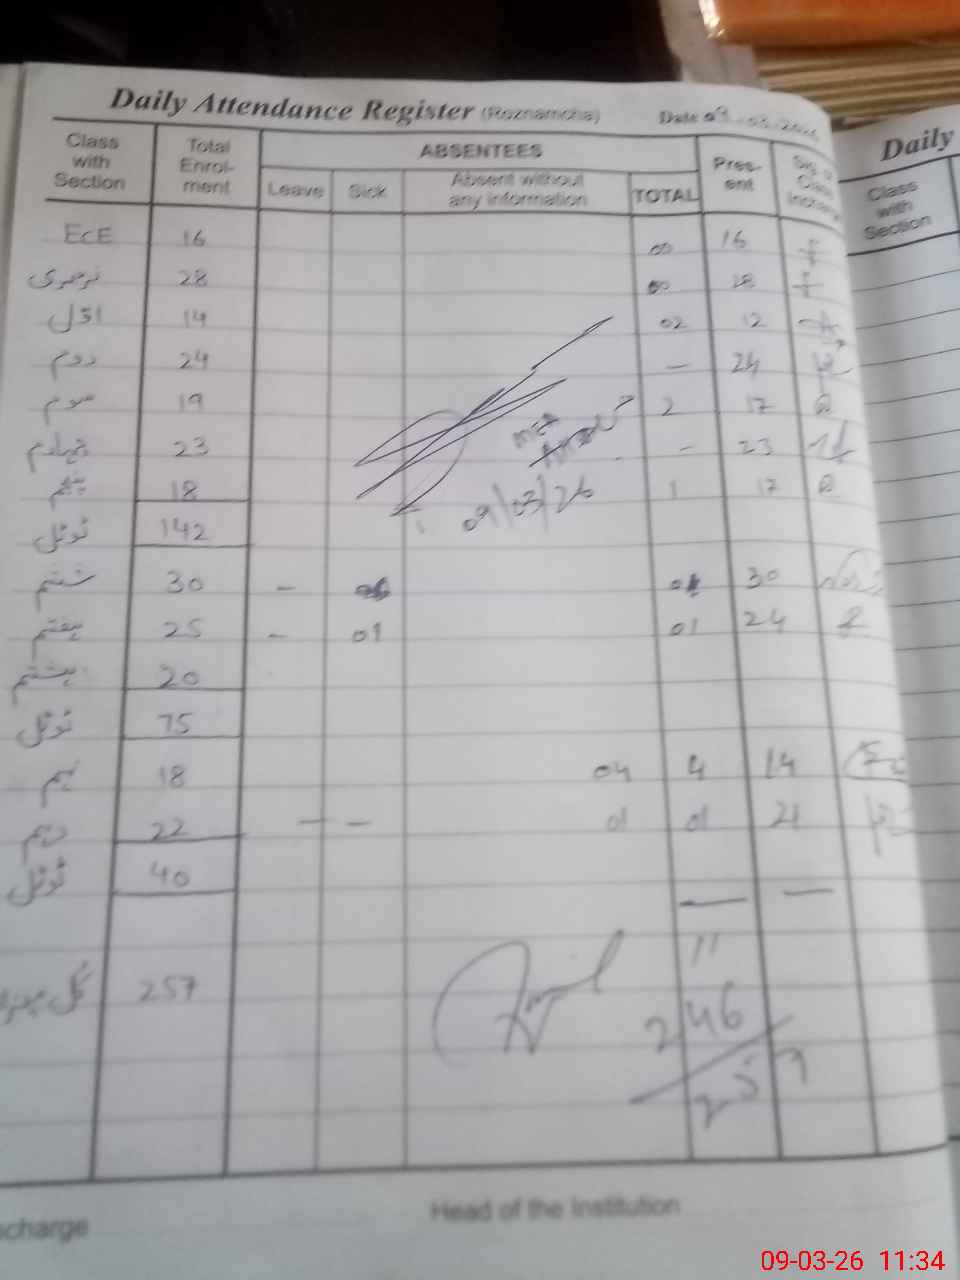 Daily Attendance Register (Roznamcha) Date 09-03-2026
Class with Section Total Enrol-ment ABSENTEES Pres-ent Sig. of Class Incharge
Leave Sick Absent without any information TOTAL
ECE 16 00 16
نرسری 28 00 28
اوّل 14 02 12
دوم 24 — 24
سوم 19 2 17
چہارم 23 - 23
پنجم 18 1 17
MEA
09/03/26
ٹوٹل 142
ششم 30 - 30
ہفتم 25 - 01 01 24
ہشتم 20
ٹوٹل 75
نہم 18 04 4 14
دہم 22 — — 01 01 21
ٹوٹل 40
11
کل 257
246
257
Head of the Institution
ncharge
Daily
Class with Section
09-03-26 11:34